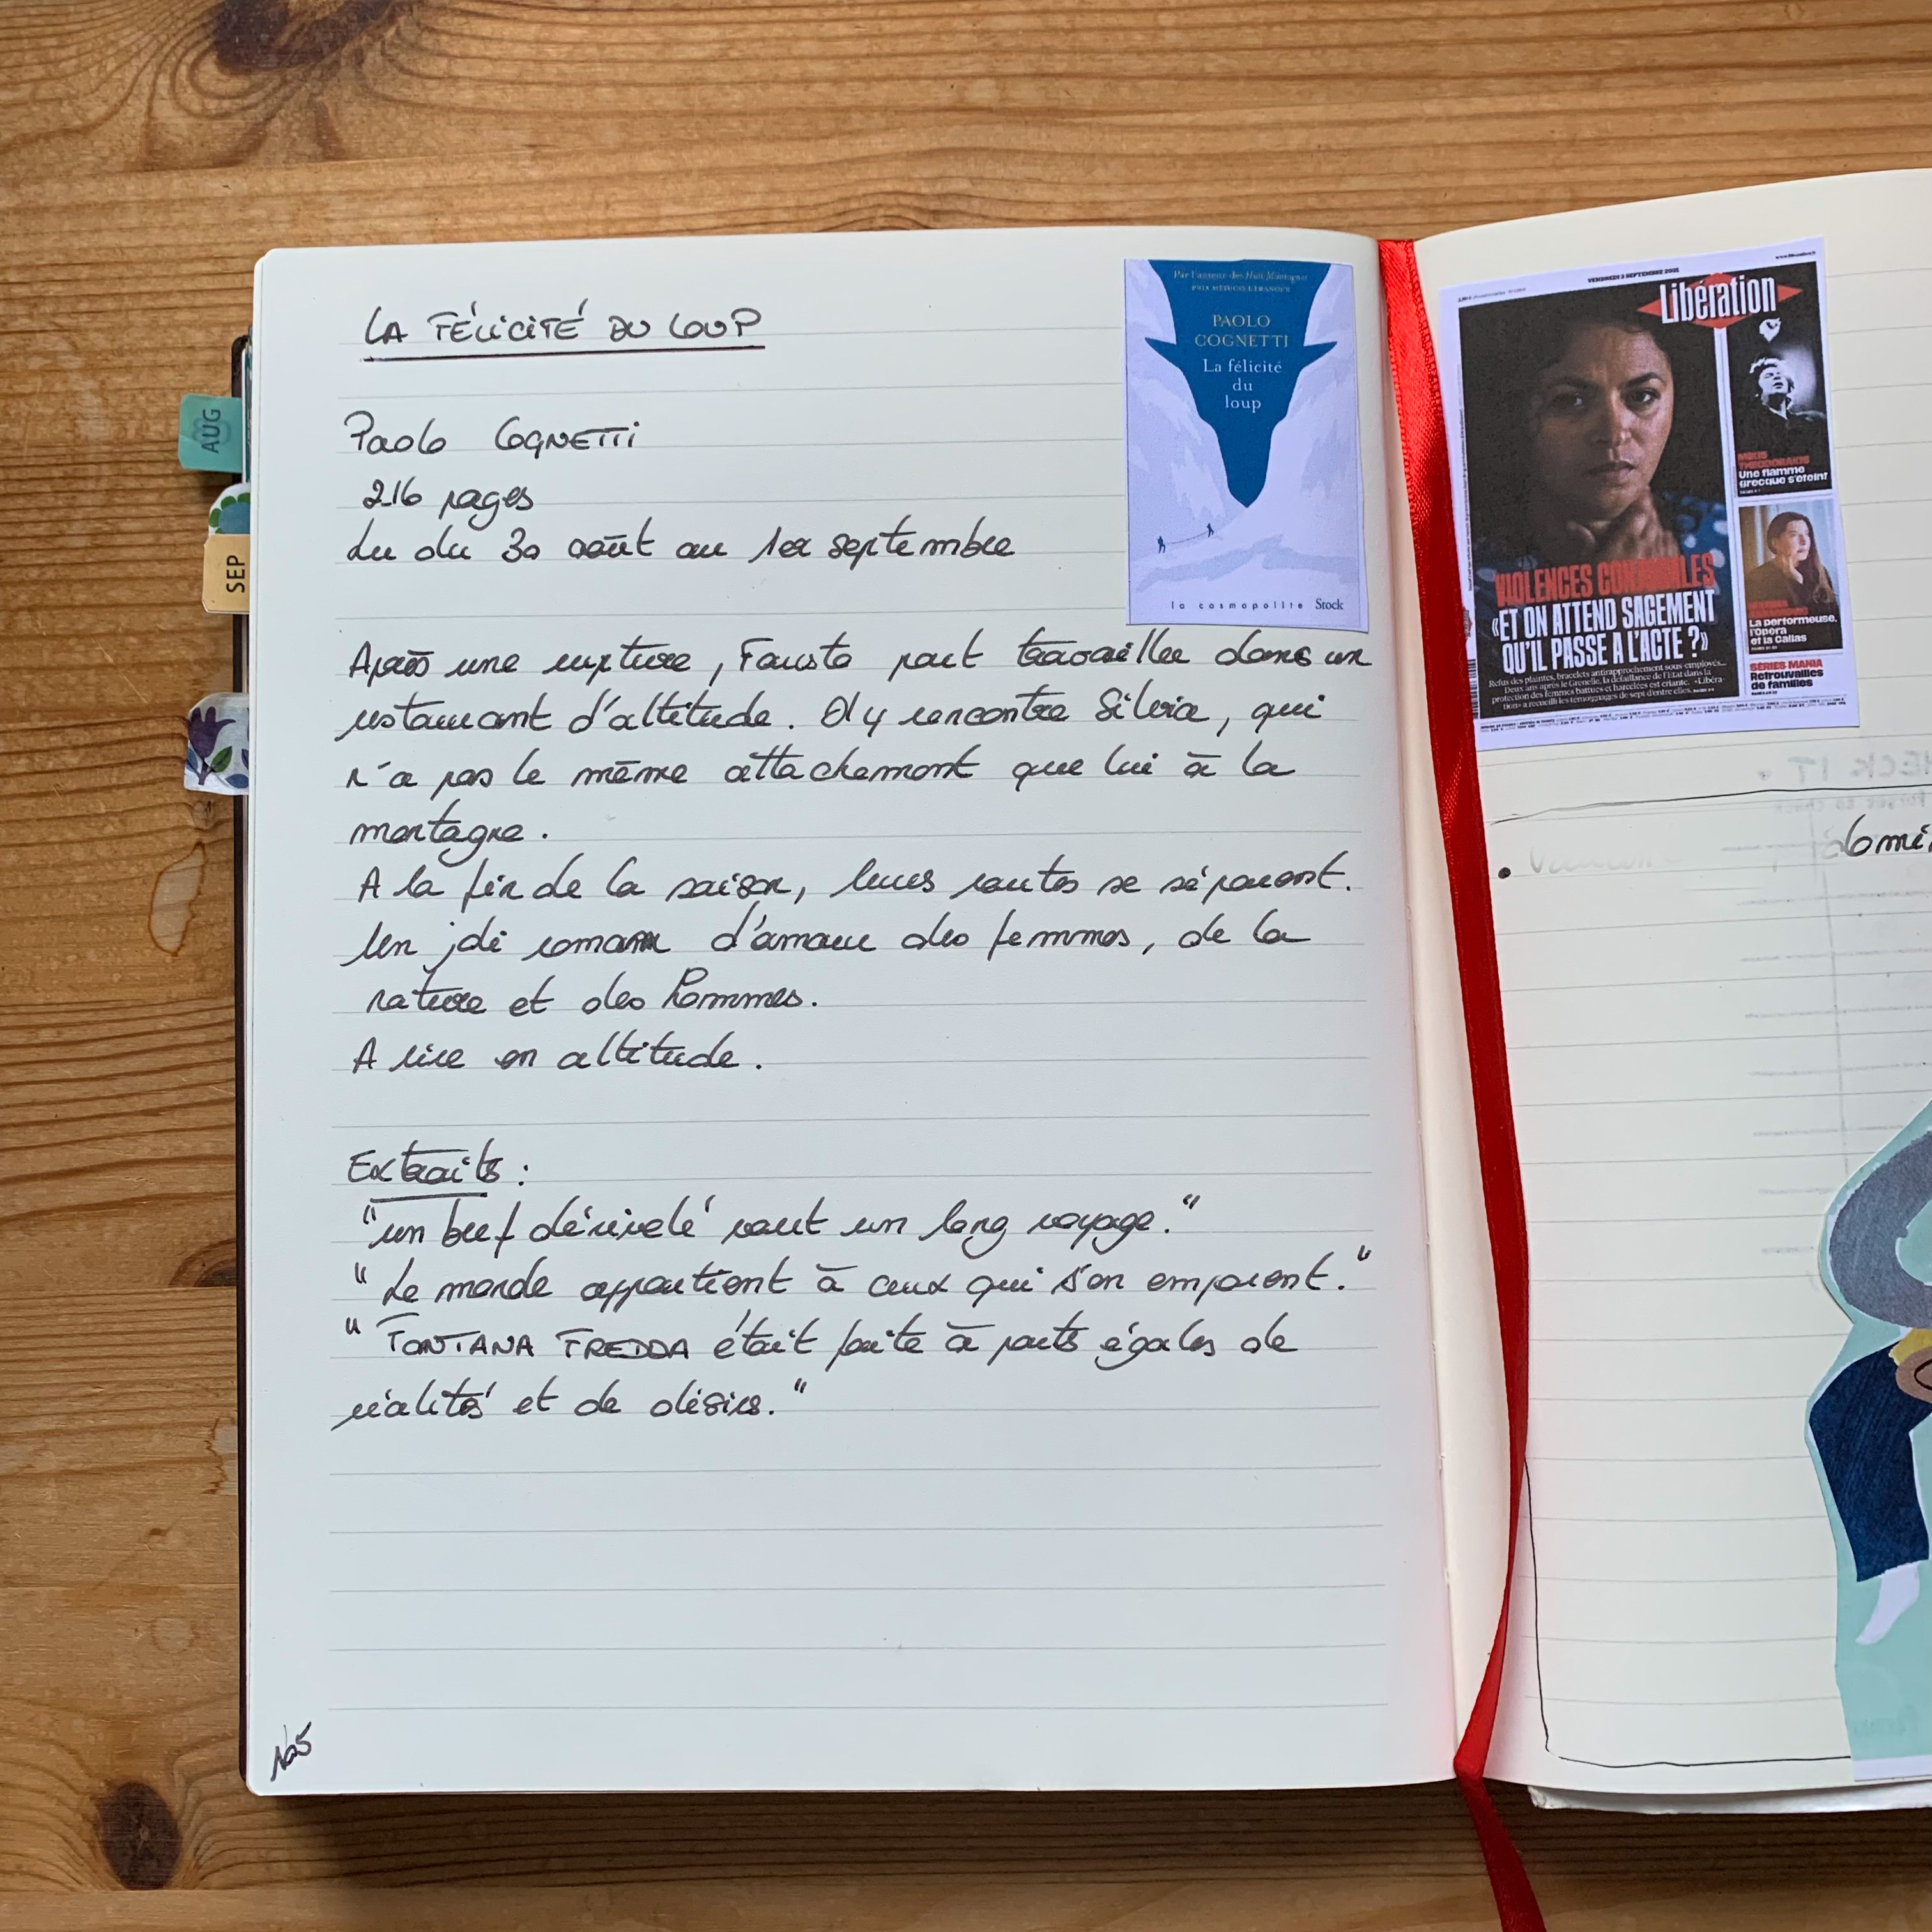 LA FÉLICITÉ DU LOUP
Paolo COGNETTI
216 pages
Lu du 30 août au 1er septembre
Après une rupture, Fausto part travailler dans un
restaurant d'altitude. Il y rencontre Silvia, qui
n'a pas le même attachement que lui à la
montagne.
A la fin de la saison, leurs routes se séparent.
Un joli roman d'amour des femmes, de la
nature et des hommes.
A lire en altitude.
Extraits :
"un bref dénivelé vaut un long voyage."
"Le monde appartient à ceux qui s'en emparent."
"FONTANA FREDDA était faite à parts égales de
réalités et de désirs."
105
AUG
SEP
Par l'auteur des Huit Montagnes
PRIX MÉDICIS ÉTRANGER
PAOLO
COGNETTI
La félicité
du
loup
la cosmopolite Stock
VENDREDI 3 SEPTEMBRE 2021
www.liberation.fr
Libération
VIOLENCES CONJUGALES
«ET ON ATTEND SAGEMENT
QU'IL PASSE A L'ACTE ?»
Refus des plaintes, bracelets antirapprochement sous-employés...
Deux ans après le Grenelle, la défaillance de l'Etat dans la
protection des femmes battues et harcelées est criante. «Libéra-
tion» a recueilli les témoignages de sept d'entre elles.
MIKIS
THEODORAKIS
Une flamme
grecque s'éteint
La performeuse,
l'Opéra
et la Callas
SÉRIES MANIA
Retrouvailles
de familles